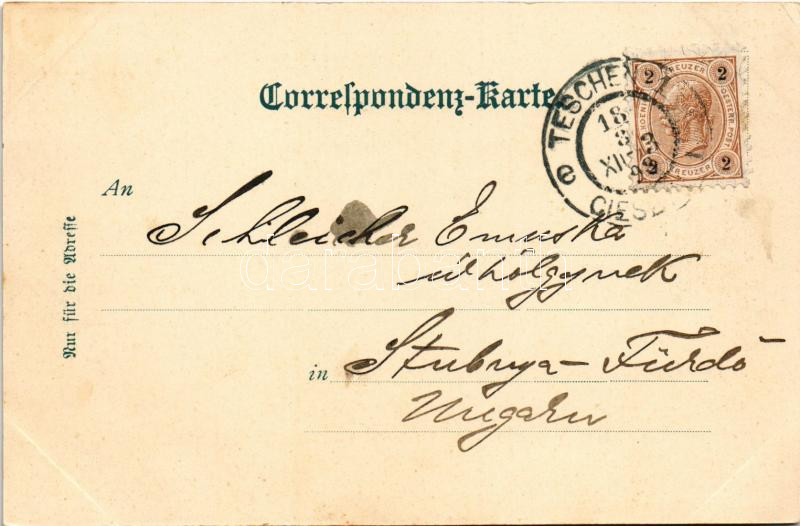 Correspondenz-Karte
TESCHEN
18
3
XII
CIESZ
2 KREUZER 2
2 KREUZER 2
OESTERR. POST.
An
Schleicher Emuska
úrhölgynek
in Stubnya-Fürdő
Ungarn
Nur für die Adresse
darabanth